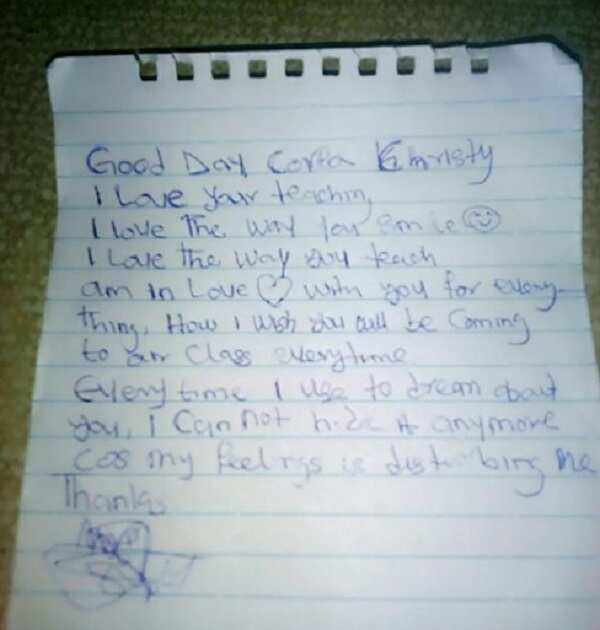 Good Day Corfa Christy
I Love your teaching
I love The way you smile
I Love the way you teach
am in Love with you for every-
thing. How I wish you will be Coming
to our Class everytime
Everytime I use to dream about
you, I Can not hide it anymore
Cos my feelings is disturbing me
Thanks